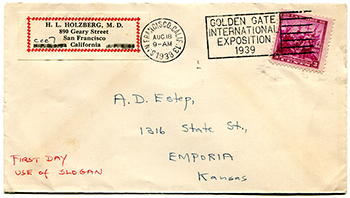 H. L. HOLZBERG, M. D.
890 Geary Street
San Francisco
California
SAN FRANCISCO, CALIF.
AUG 18
9-AM
1938
GOLDEN GATE
INTERNATIONAL
EXPOSITION
1939
A.D. Estep,
1316 State St.,
EMPORIA
Kansas
FIRST DAY
USE of SLOGAN